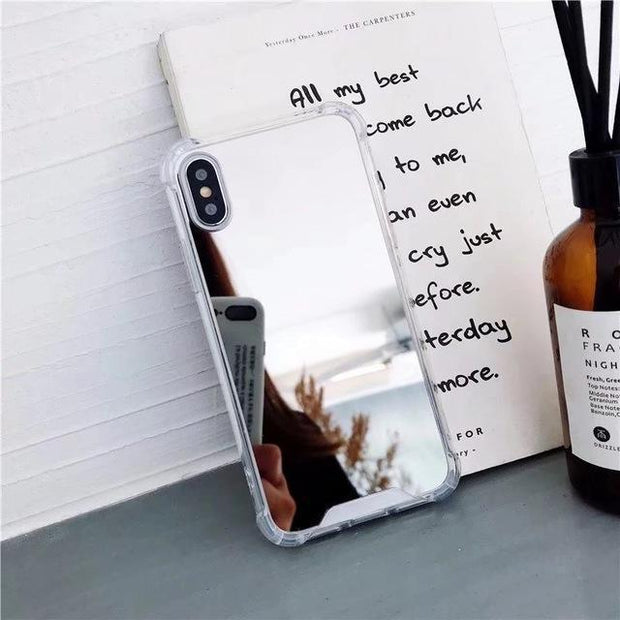 Yesterday Once More - THE CARPENTERS
All my best
come back
to me,
an even
cry just
efore.
terday
more.
FOR
ry -
R O
FRAG
NIGH
Fresh, Gree
Top Notes:
Middle Note
Geranium
Base Note
Benzoin,C
DRIZZLE